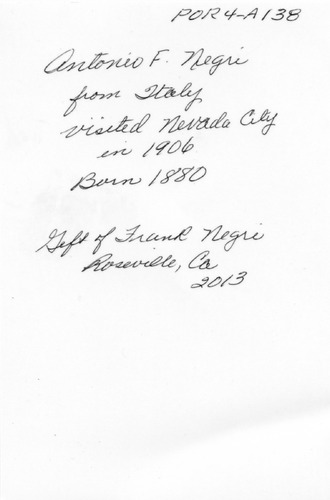 POR4-A138
Antonio F. Negri
from Italy
visited Nevada City
in 1906
Born 1880
Gift of Frank Negri
Roseville, Ca
2013